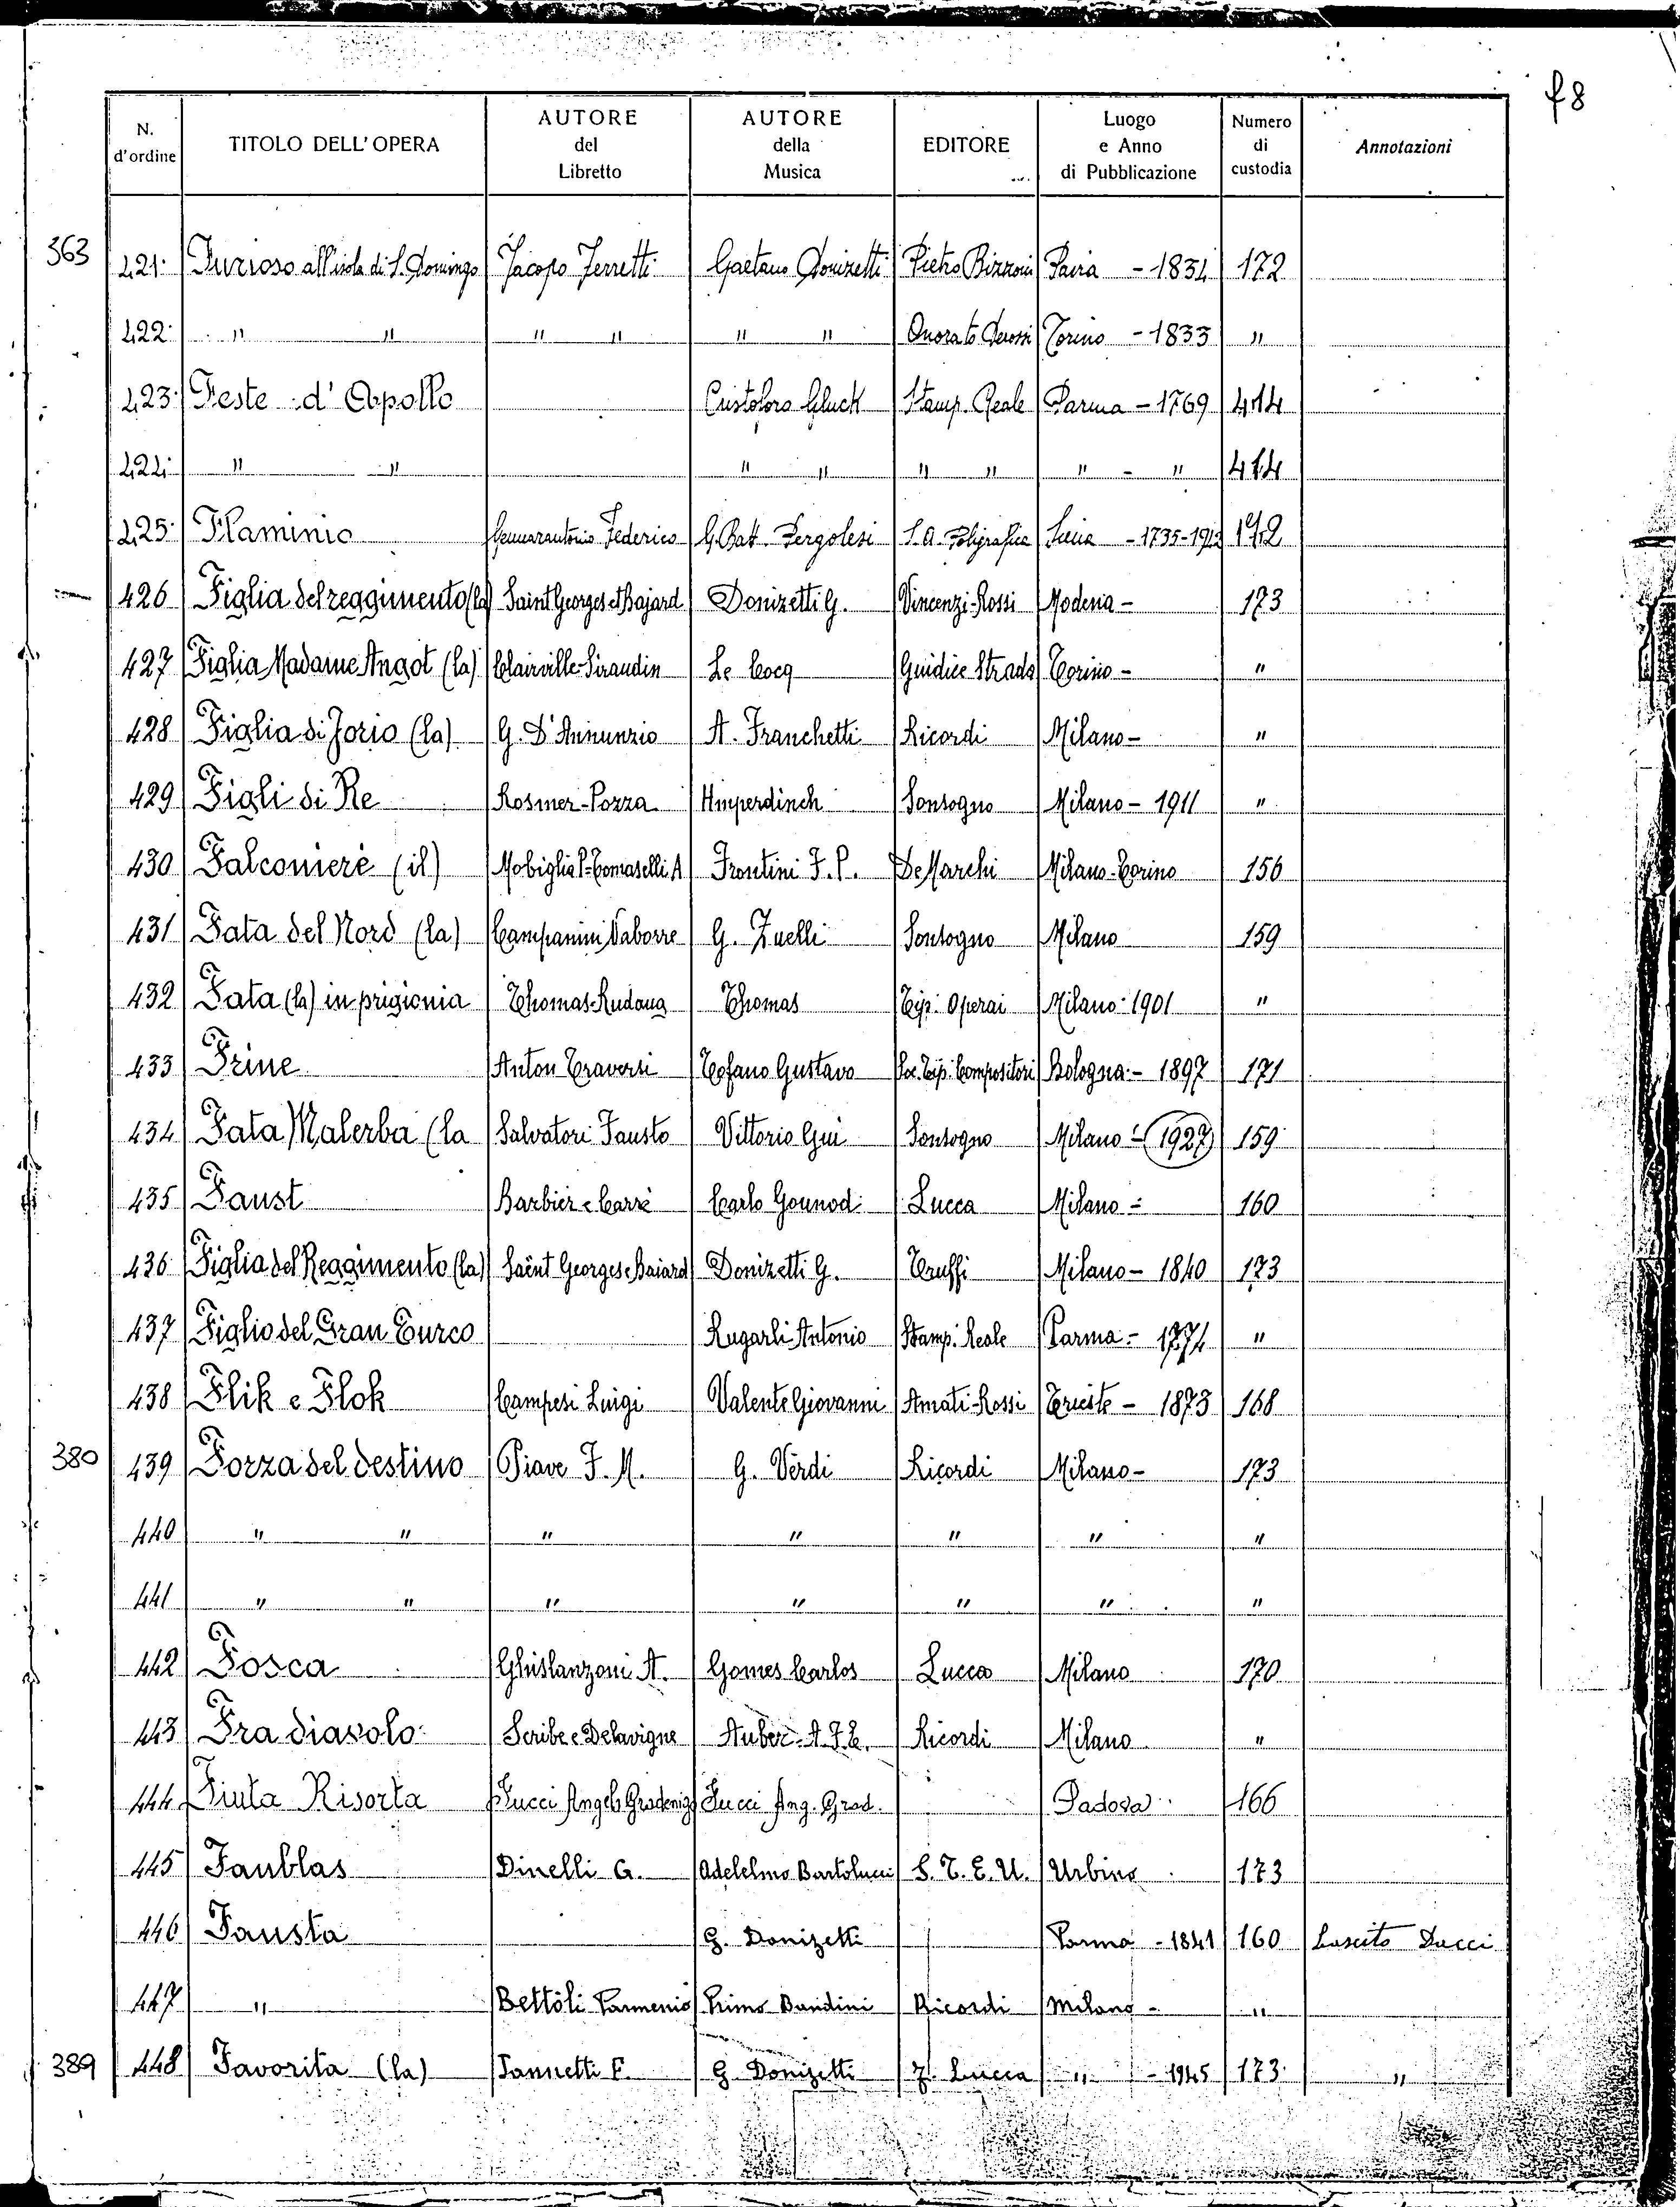 f8
N. d'ordine | TITOLO DELL' OPERA | AUTORE del Libretto | AUTORE della Musica | EDITORE | Luogo e Anno di Pubblicazione | Numero di custodia | Annotazioni
363 | 421 | Furioso all'isola di S. Domingo | Jacopo Ferretti | Gaetano Donizetti | Pietro Bizzoni | Pavia - 1834 | 172
422 | " " | " " | " " | Onorato Derossi | Torino - 1833 | "
423 | Feste d'Apollo | | Cristoforo Gluck | Stamp. Reale | Parma - 1769 | 414
424 | " " | | " " | " " | " - " | 414
425 | Flaminio | Gennarantonio Federico | G. Batt. Pergolesi | S. A. Poligrafica | - 1735 - | 172
426 | Figlia del reggimento (la) | Saint Georges et Bajard | Donizetti G. | Vincenzi-Rossi | Modena - | 173
427 | Figlia Madame Angot (la) | Clairville-Siraudin | Le Cocq | Guidice Strada | Torino - | "
428 | Figlia di Jorio (la) | G. D'Annunzio | A. Franchetti | Ricordi | Milano - | "
429 | Figli di Re | Rosmer-Pozza | Humperdinch | Sonzogno | Milano - 1911 | "
430 | Falconiere (il) | Mobiglia P.-Tomaselli A | Frontini F. P. | De Marchi | Milano-Torino | 156
431 | Fata del Nord (la) | Campanini Naborre | G. Zuelli | Sonzogno | Milano | 159
432 | Fata (la) in prigionia | Thomas-Rudana | Thomas | Tip. Operai | Milano - 1901 | "
433 | Frine | Anton Traversi | Tofano Gustavo | Soc. Tip. Compositori | Bologna - 1897 | 171
434 | Fata Malerba (la | Salvatori Fausto | Vittorio Gui | Sonzogno | Milano - (1927) | 159
435 | Faust | Barbier e Carré | Carlo Gounod | Lucca | Milano - | 160
436 | Figlia del Reggimento (la) | Saint Georges e Baiard | Donizetti G. | Truffi | Milano - 1840 | 173
437 | Figlio del Gran Turco | | Rugarli Antonio | Stamp. Reale | Parma - 1774 | "
438 | Flik e Flok | Campesi Luigi | Valente Giovanni | Amati-Rossi | Trieste - 1873 | 168
380 | 439 | Forza del destino | Piave F. M. | G. Verdi | Ricordi | Milano - | 173
440 | " " | " | " | " | " | "
441 | " " | " | " | " | " | "
442 | Fosca | Ghislanzoni A. | Gomes Carlos | Lucca | Milano | 170
443 | Fra diavolo | Scribe e Delavigne | Auber A. F. E. | Ricordi | Milano | "
444 | Fiuta Risorta | Zucci Angelo Gradenig | Zucci Ang. Grad. | | Padova | 166
445 | Faublas | Dinelli G. | Adelelmo Bartolucci | S. T. E. U. | Urbino | 173
446 | Fausta | | G. Donizetti | | Parma - 1841 | 160 | Lascito Ducci
447 | " | Bettòli Parmenio | Primo Bandini | Ricordi | Milano - | "
389 | 448 | Favorita (la) | Jannetti F. | G. Donizetti | F. Lucca | " - 1945 | 173 | "